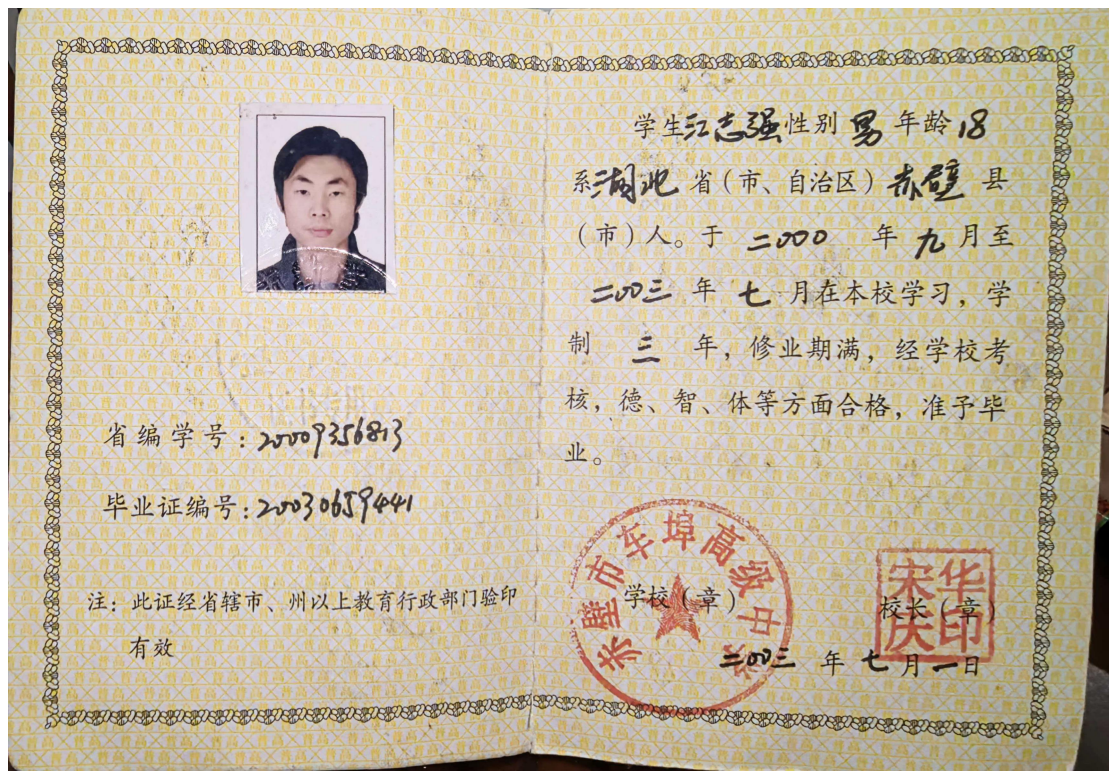 省编学号：20009356813
毕业证编号：20030659441
注：此证经省辖市、州以上教育行政部门验印
有效
学生江志强性别 男 年龄 18
系湖北 省（市、自治区） 赤壁 县
（市）人。于 二000 年 九 月至
二00三 年 七 月在本校学习，学
制 三 年，修业期满，经学校考
核，德、智、体等方面合格，准予毕
业。
赤壁市车埠高级中学
学校（章）
宋华庆印
校长（章）
二00三 年 七 月 一 日